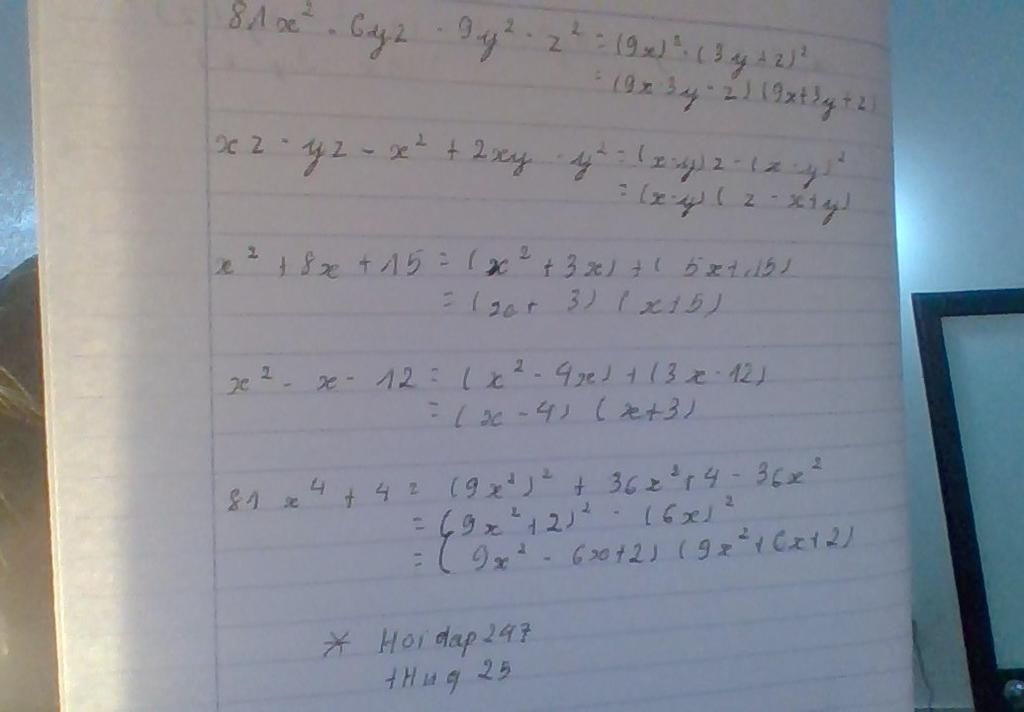 81x² - 6yz - 9y² - z² = (9x)² - (3y+z)²
= (9x-3y-z)(9x+3y+z)
xz - yz - x² + 2xy - y² = (x-y)z - (x-y)²
= (x-y)(z-x+y)
x² + 8x + 15 = (x² + 3x) + (5x+15)
= (x+3)(x+5)
x² - x - 12 = (x² - 4x) + (3x-12)
= (x-4)(x+3)
81x⁴ + 4 = (9x²)² + 36x² + 4 - 36x²
= (9x²+2)² - (6x)²
= (9x² - 6x+2)(9x²+6x+2)
* Hoidap247